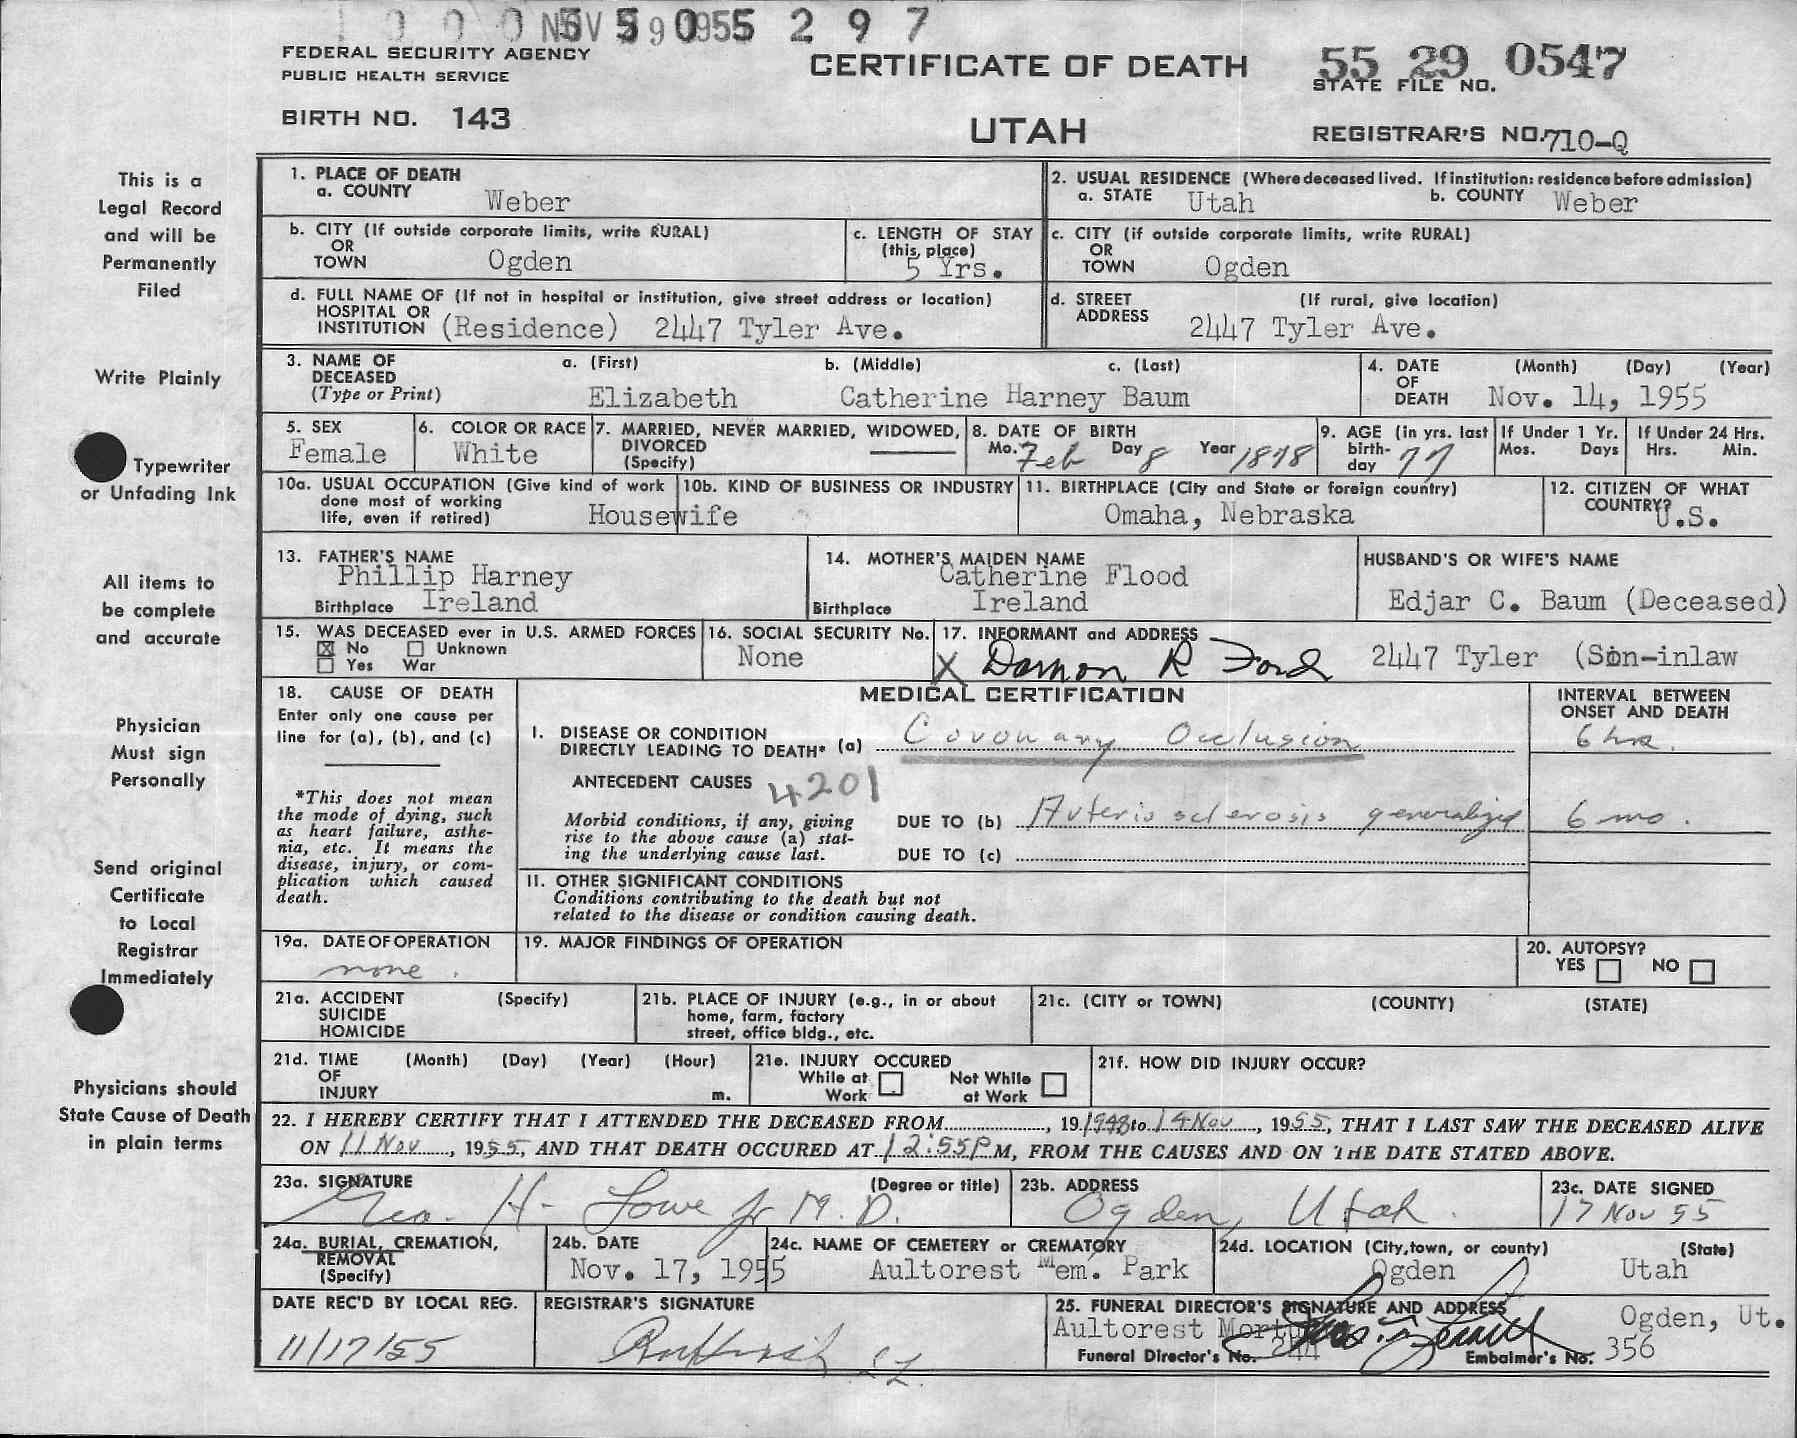 NOV 29 1955 2 9 7
FEDERAL SECURITY AGENCY
PUBLIC HEALTH SERVICE
CERTIFICATE OF DEATH
55 29 0547
STATE FILE NO.
BIRTH NO. 143
UTAH
REGISTRAR'S NO. 710-Q
This is a
Legal Record
and will be
Permanently
Filed
Write Plainly
Typewriter
or Unfading Ink
All items to
be complete
and accurate
Physician
Must sign
Personally
Send original
Certificate
to Local
Registrar
Immediately
Physicians should
State Cause of Death
in plain terms
1. PLACE OF DEATH
a. COUNTY Weber
2. USUAL RESIDENCE (Where deceased lived. If institution: residence before admission)
a. STATE Utah b. COUNTY Weber
b. CITY (If outside corporate limits, write RURAL)
OR
TOWN Ogden
c. LENGTH OF STAY
(this place)
5 Yrs.
c. CITY (if outside corporate limits, write RURAL)
OR
TOWN Ogden
d. FULL NAME OF (If not in hospital or institution, give street address or location)
HOSPITAL OR
INSTITUTION (Residence) 2447 Tyler Ave.
d. STREET (If rural, give location)
ADDRESS 2447 Tyler Ave.
3. NAME OF a. (First) b. (Middle) c. (Last)
DECEASED
(Type or Print) Elizabeth Catherine Harney Baum
4. DATE (Month) (Day) (Year)
OF
DEATH Nov. 14, 1955
5. SEX
Female
6. COLOR OR RACE
White
7. MARRIED, NEVER MARRIED, WIDOWED,
DIVORCED
(Specify)
8. DATE OF BIRTH
Mo. Feb Day 8 Year 1878
9. AGE (in yrs. last
birth-
day 77
If Under 1 Yr.
Mos. Days
If Under 24 Hrs.
Hrs. Min.
10a. USUAL OCCUPATION (Give kind of work
done most of working
life, even if retired) Housewife
10b. KIND OF BUSINESS OR INDUSTRY
11. BIRTHPLACE (City and State or foreign country)
Omaha, Nebraska
12. CITIZEN OF WHAT
COUNTRY?
U.S.
13. FATHER'S NAME
Phillip Harney
Birthplace Ireland
14. MOTHER'S MAIDEN NAME
Catherine Flood
Birthplace Ireland
HUSBAND'S OR WIFE'S NAME
Edjar C. Baum (Deceased)
15. WAS DECEASED ever in U.S. ARMED FORCES
No Unknown
Yes War
16. SOCIAL SECURITY No.
None
17. INFORMANT and ADDRESS
X Damon R Ford 2447 Tyler (Son-inlaw
18. CAUSE OF DEATH
Enter only one cause per
line for (a), (b), and (c)
*This does not mean
the mode of dying, such
as heart failure, asthe-
nia, etc. It means the
disease, injury, or com-
plication which caused
death.
MEDICAL CERTIFICATION
INTERVAL BETWEEN
ONSET AND DEATH
I. DISEASE OR CONDITION
DIRECTLY LEADING TO DEATH* (a) Coronary Occlusion 6 hr.
ANTECEDENT CAUSES 4201
Morbid conditions, if any, giving
rise to the above cause (a) stat-
ing the underlying cause last.
DUE TO (b) Arteriosclerosis generalized 6 mo.
DUE TO (c)
II. OTHER SIGNIFICANT CONDITIONS
Conditions contributing to the death but not
related to the disease or condition causing death.
19a. DATE OF OPERATION
none.
19. MAJOR FINDINGS OF OPERATION
20. AUTOPSY?
YES NO
21a. ACCIDENT (Specify)
SUICIDE
HOMICIDE
21b. PLACE OF INJURY (e.g., in or about
home, farm, factory
street, office bldg., etc.
21c. (CITY or TOWN) (COUNTY) (STATE)
21d. TIME (Month) (Day) (Year) (Hour)
OF
INJURY m.
21e. INJURY OCCURED
While at Work
Not While at Work
21f. HOW DID INJURY OCCUR?
22. I HEREBY CERTIFY THAT I ATTENDED THE DECEASED FROM , 19 1948 to 14 Nov , 1955, THAT I LAST SAW THE DECEASED ALIVE
ON 11 Nov , 1955, AND THAT DEATH OCCURED AT 12:55P M, FROM THE CAUSES AND ON THE DATE STATED ABOVE.
23a. SIGNATURE (Degree or title)
Geo. H. Lowe Jr M.D.
23b. ADDRESS
Ogden, Utah.
23c. DATE SIGNED
17 Nov 55
24a. BURIAL, CREMATION,
REMOVAL
(Specify)
24b. DATE
Nov. 17, 1955
24c. NAME OF CEMETERY or CREMATORY
Aultorest Mem. Park
24d. LOCATION (City, town, or county) (State)
Ogden Utah
DATE REC'D BY LOCAL REG.
11/17/55
REGISTRAR'S SIGNATURE
25. FUNERAL DIRECTOR'S SIGNATURE AND ADDRESS
Aultorest Ogden, Ut.
Funeral Director's No. 244 Embalmer's No. 356